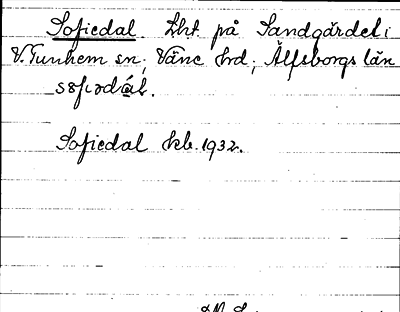 Sofiedal. Lht. på Sandgärdet i
V. Tunhem sn; Väne hrd; Älfsborgs län
sofiadal.
Sofiedal Kb. 1932.